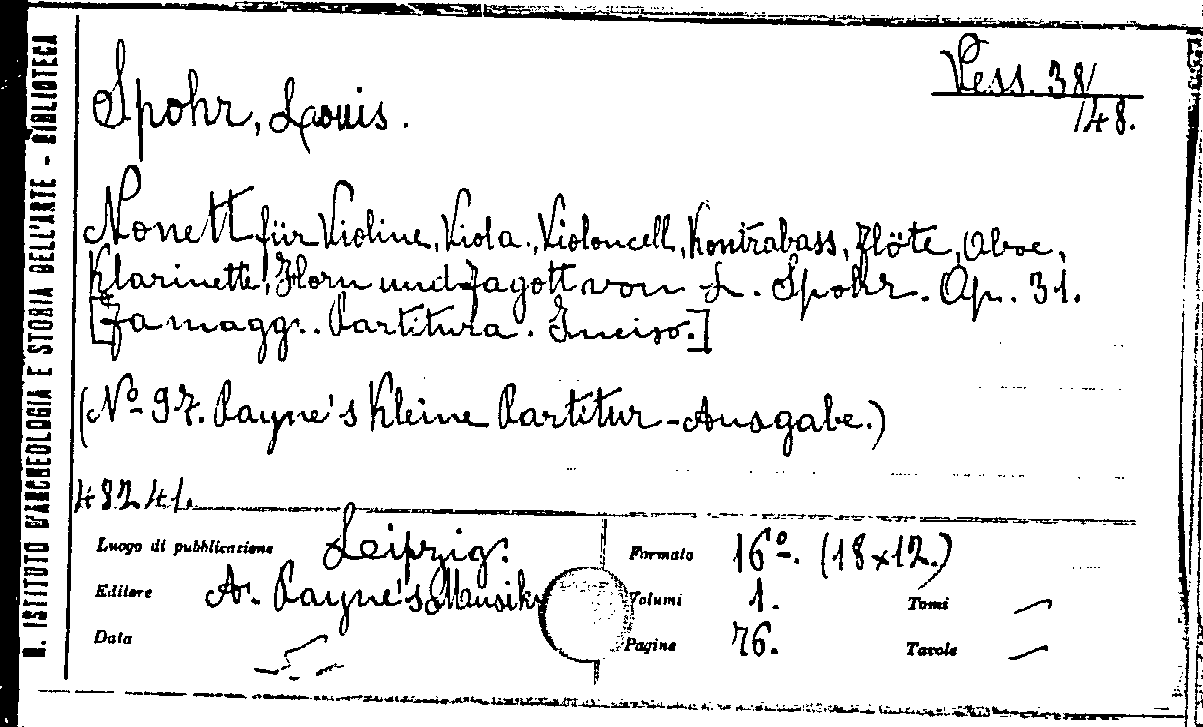 R. ISTITUTO D'ARCHEOLOGIA E STORIA DELL'ARTE - BIBLIOTECA
Spohr, Louis.
Vess. 38/
148.
Nonett für Violine, Viola, Violoncell, Kontrabass, Flöte, Oboe,
Klarinette, Horn und Fagott von L. Spohr. Op. 31.
[Fa magg.. Partitura. Inciso.]
(Nº 97. Payne's Kleine Partitur-Ausgabe.)
48241.
Luogo di pubblicazione Leipzig. Formato 16º. (18x12.)
Editore A. Payne's Musikv Volumi 1. Tomi —
Data — Pagine 76. Tavole —